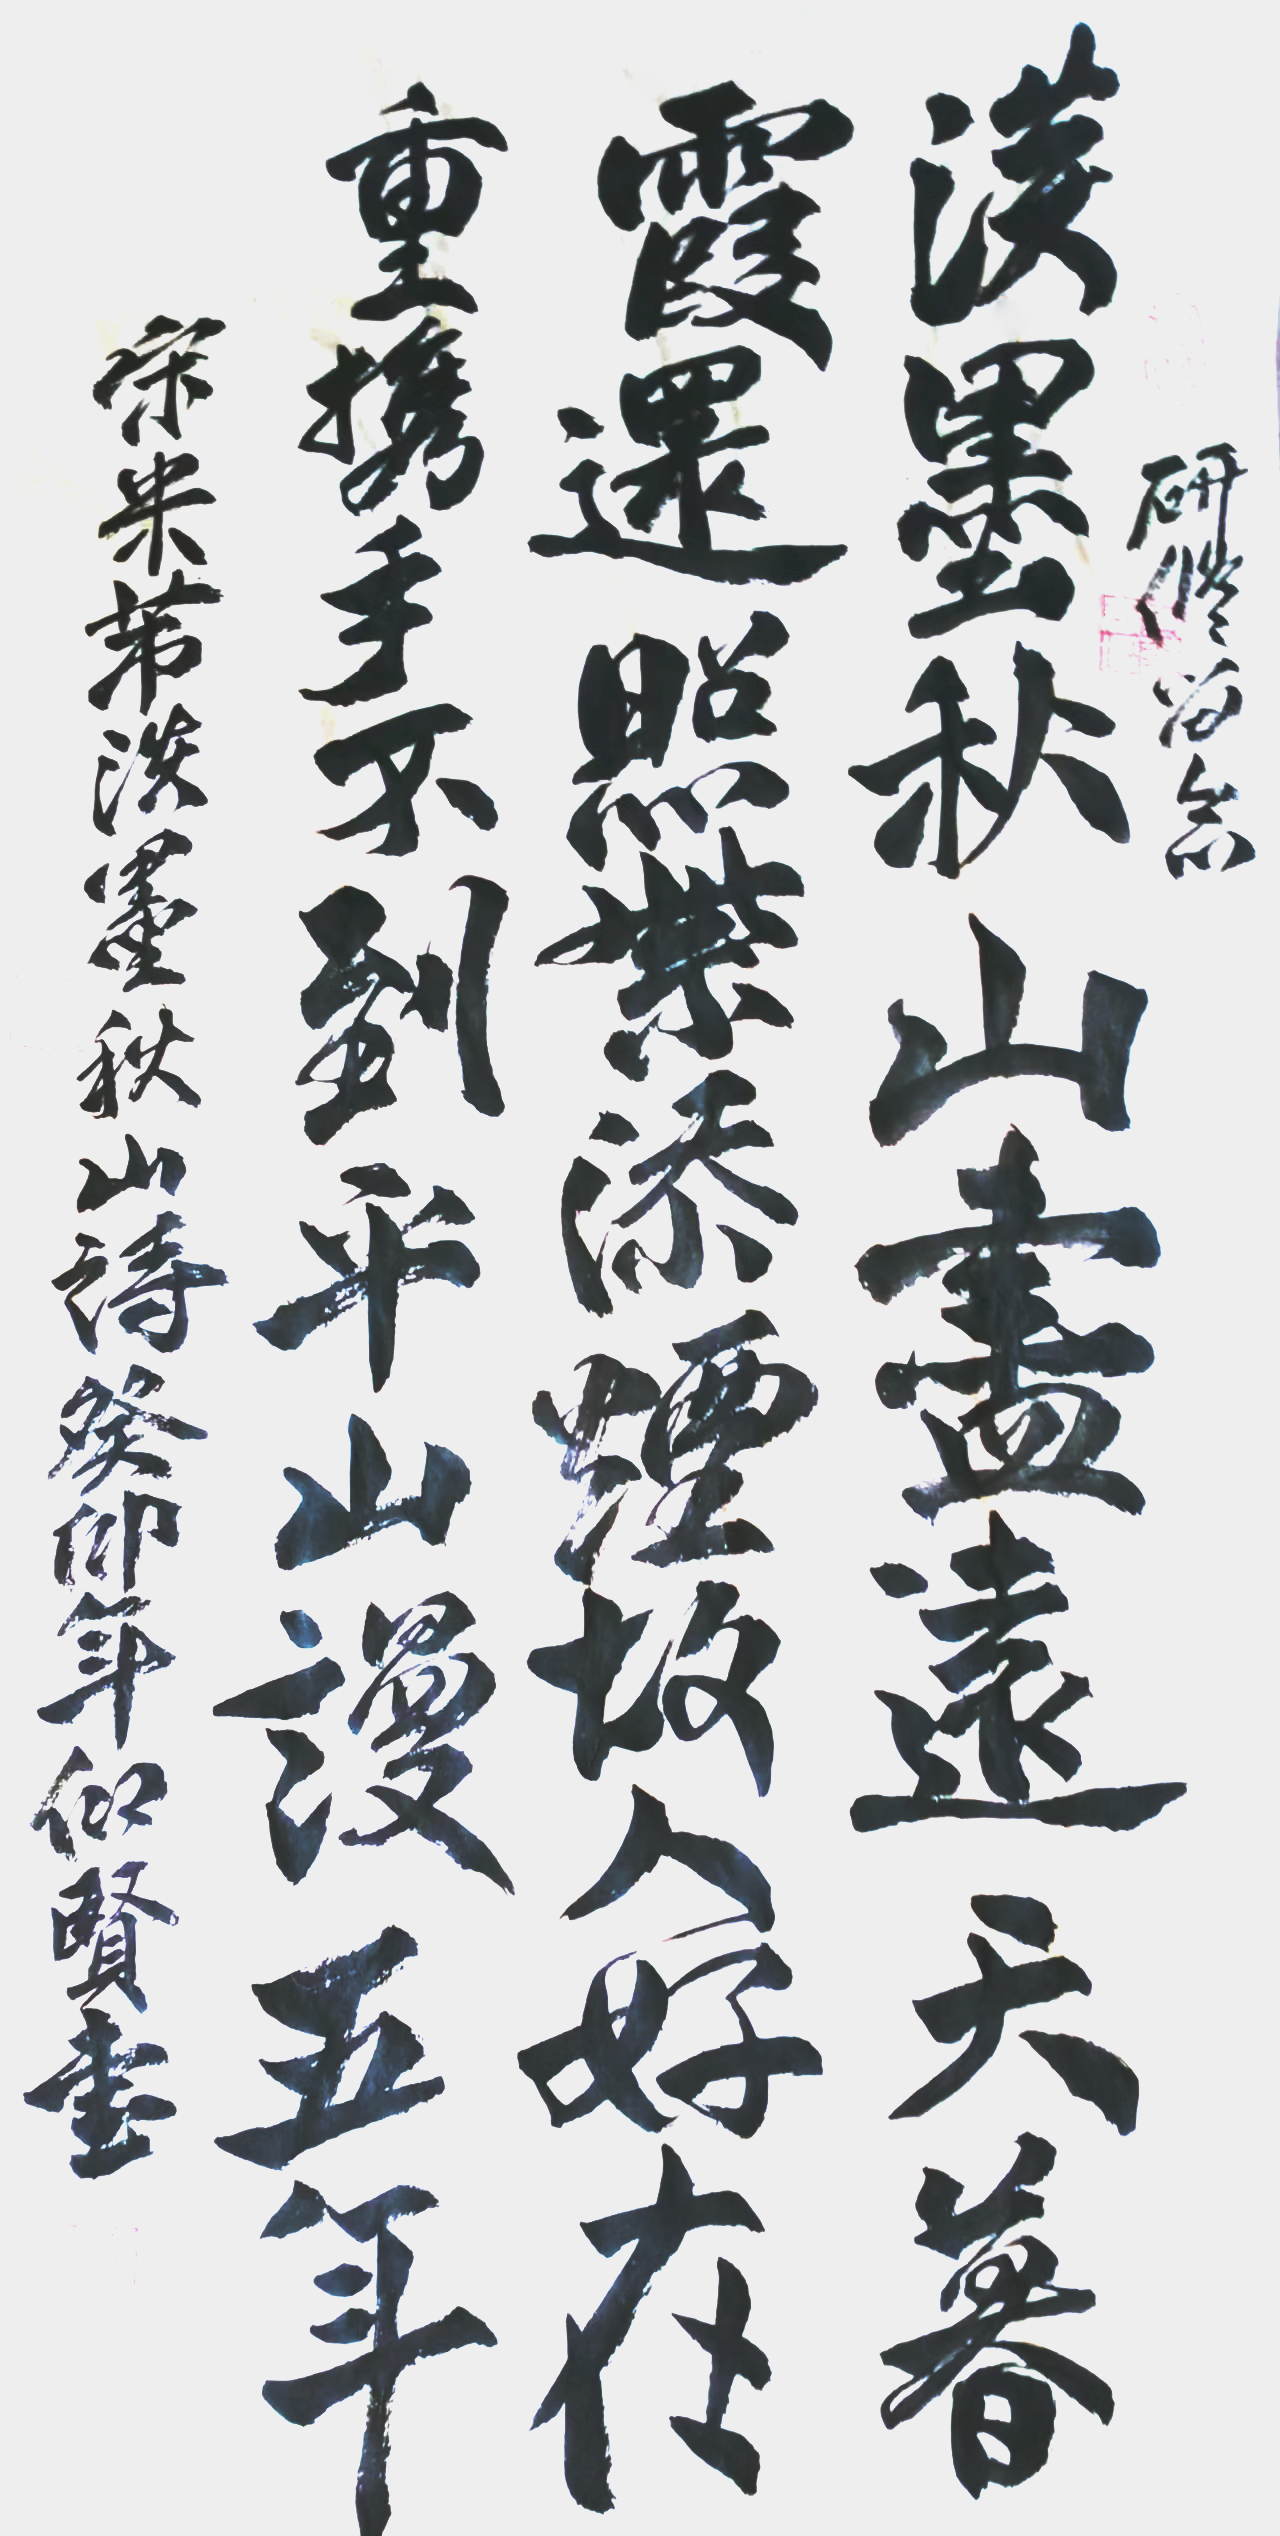 研修留念
淡墨秋山盡遠天暮
霞還照紫添煙故人好在
重携手不到平山漫五年
宋米芾淡墨秋山詩癸卯年仰賢書